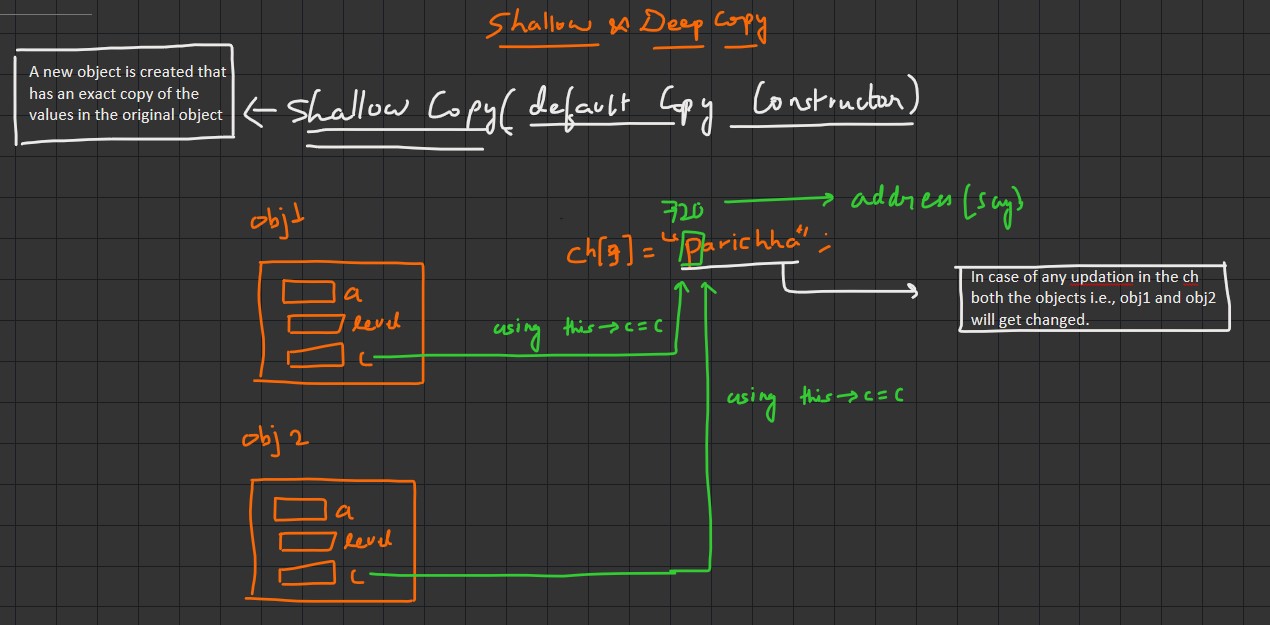 Shallow & Deep Copy
A new object is created that
has an exact copy of the
values in the original object
← Shallow Copy( default Copy Constructor)
720 → address (say)
obj1
ch[9] = "Parichha" ;
a
level
c
using this→c=c
In case of any updation in the ch
both the objects i.e., obj1 and obj2
will get changed.
using this→c=c
obj 2
a
level
c